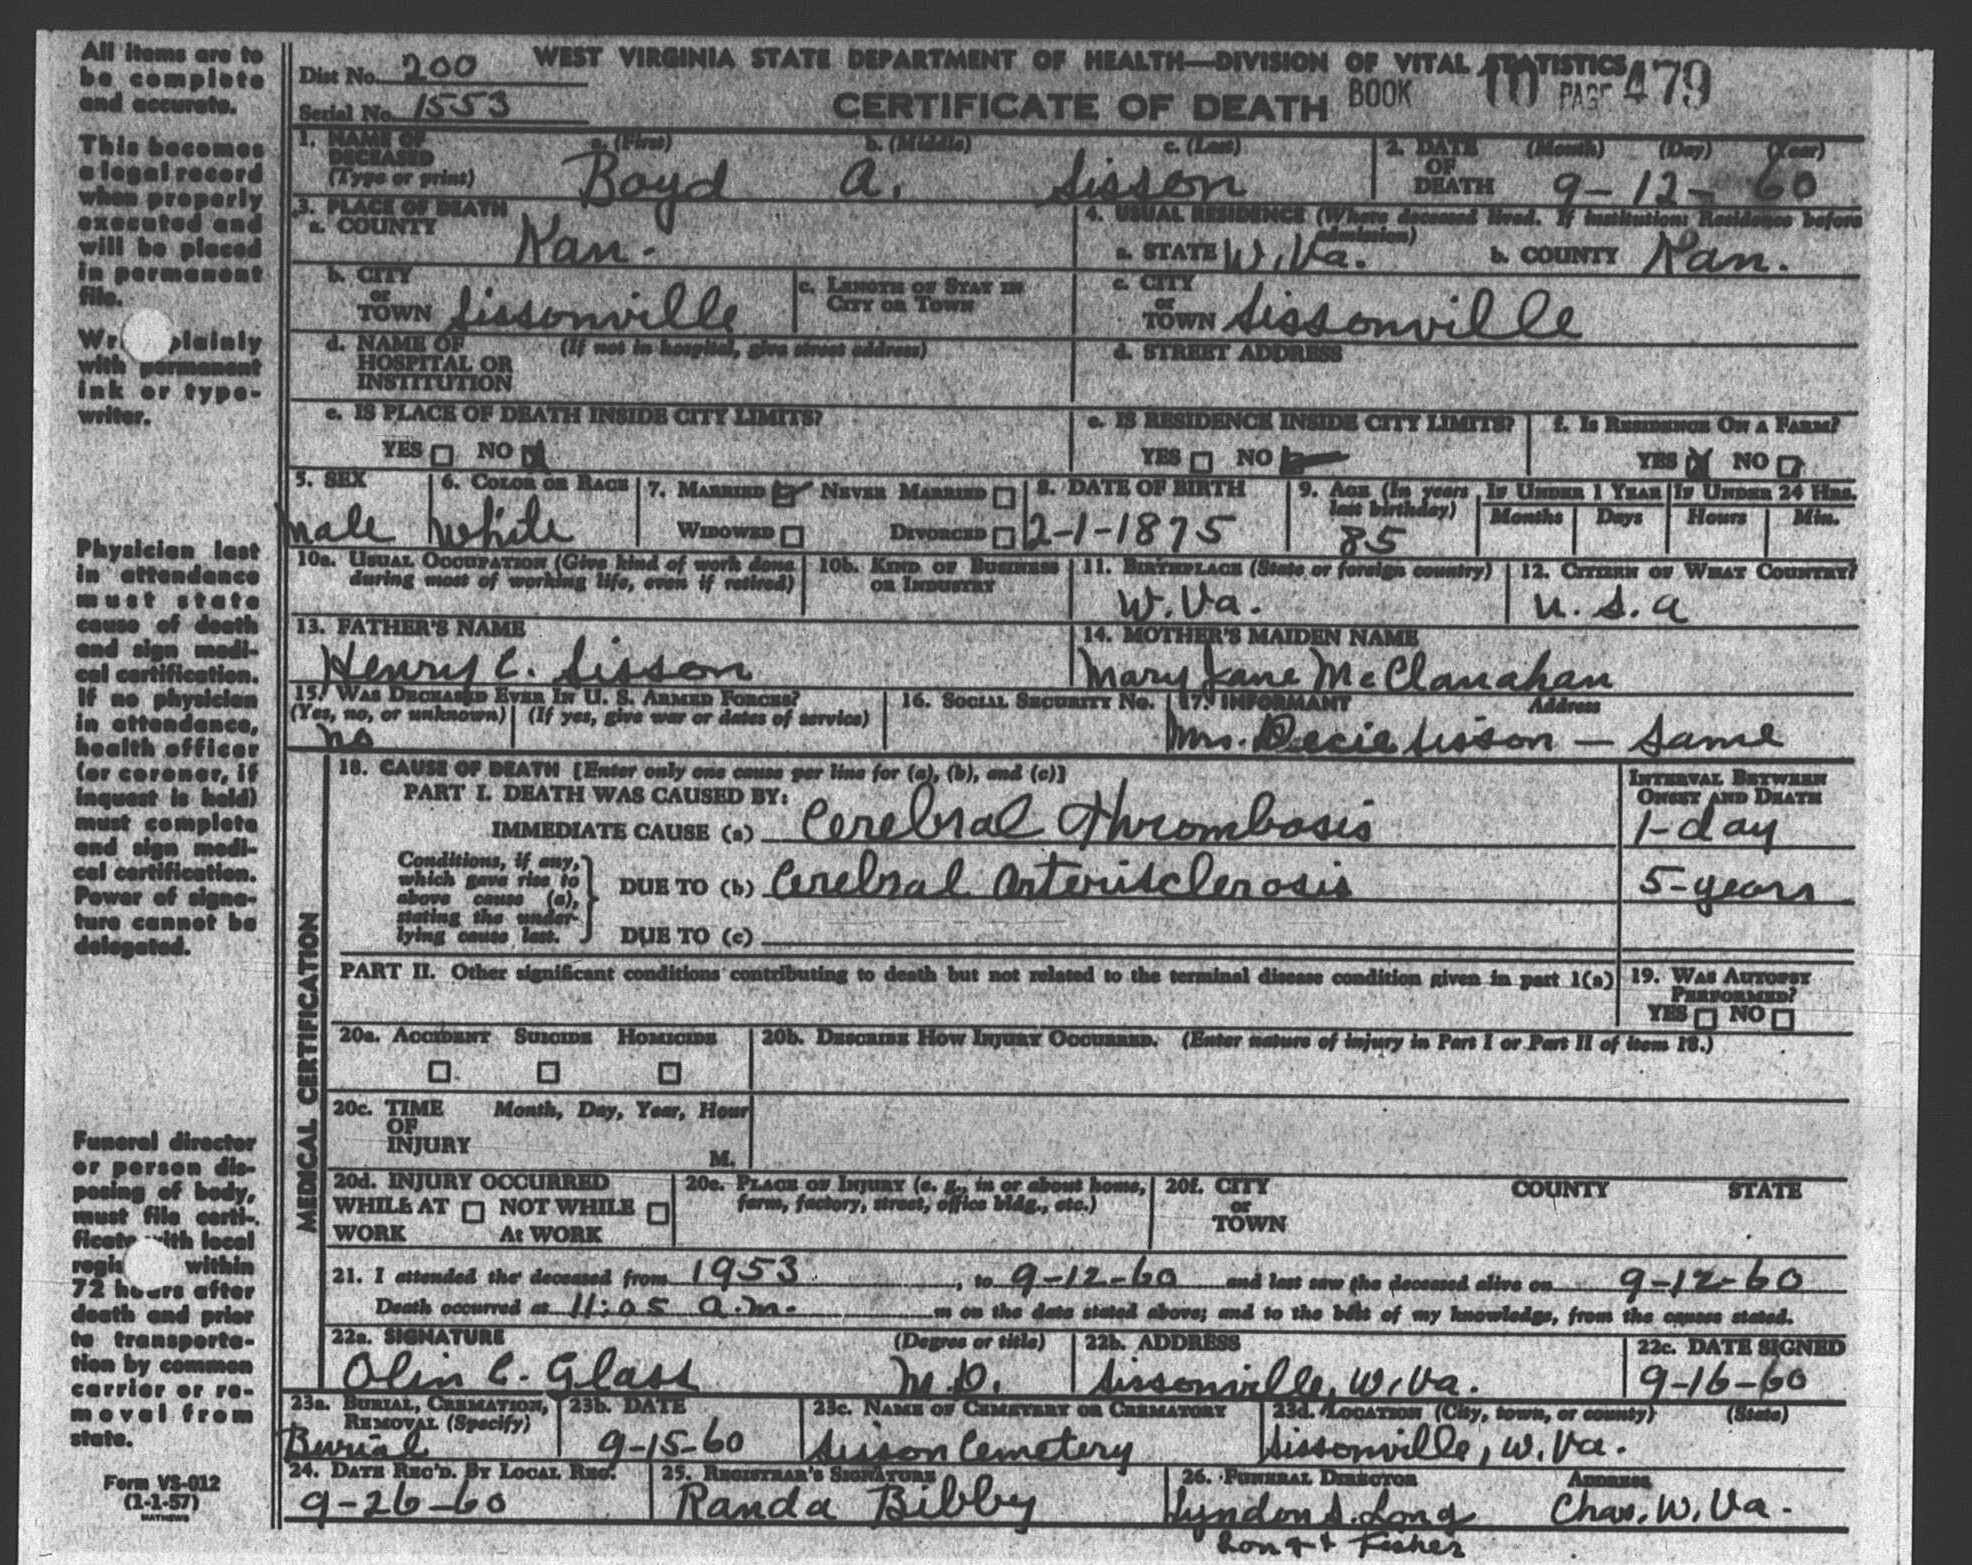 All items are to
be complete
and accurate.
This becomes
a legal record
when properly
executed and
will be placed
in permanent
file.
plainly
with permanent
ink or type-
writer.
Physician last
in attendance
must state
cause of death
and sign medi-
cal certification.
If no physician
in attendance,
health officer
(or coroner, if
inquest is held)
must complete
and sign medi-
cal certification.
Power of signa-
ture cannot be
delegated.
Funeral director
or person dis-
posing of body,
must file certi-
ficate with local
within
72 hours after
death and prior
to transporta-
tion by common
carrier or re-
moval from
state.
Form VS-012
(1-1-57)
MATHEWS
Dist No. 200
Serial No. 1553
WEST VIRGINIA STATE DEPARTMENT OF HEALTH—DIVISION OF VITAL STATISTICS
CERTIFICATE OF DEATH BOOK 10 PAGE 479
1. NAME OF DECEASED (Type or print) a. (First) b. (Middle) c. (Last)
Boyd A. Sisson
2. DATE OF DEATH (Month) (Day) (Year)
9-12-60
3. PLACE OF DEATH
a. COUNTY Kan.
4. USUAL RESIDENCE (Where deceased lived. If institution: Residence before admission)
a. STATE W. Va. b. COUNTY Kan.
b. CITY or TOWN Sissonville
c. LENGTH OF STAY IN CITY OR TOWN
c. CITY or TOWN Sissonville
d. NAME OF HOSPITAL OR INSTITUTION (If not in hospital, give street address)
d. STREET ADDRESS
e. IS PLACE OF DEATH INSIDE CITY LIMITS?
YES NO
e. IS RESIDENCE INSIDE CITY LIMITS?
YES NO
f. IS RESIDENCE ON A FARM?
YES X NO
5. SEX
Male
6. COLOR OR RACE
White
7. MARRIED NEVER MARRIED
WIDOWED DIVORCED
8. DATE OF BIRTH
2-1-1875
9. AGE (In years last birthday)
85
IF UNDER 1 YEAR
Months Days
IF UNDER 24 HRS.
Hours Min.
10a. USUAL OCCUPATION (Give kind of work done during most of working life, even if retired)
10b. KIND OF BUSINESS OR INDUSTRY
11. BIRTHPLACE (State or foreign country)
W. Va.
12. CITIZEN OF WHAT COUNTRY?
U. S. A
13. FATHER'S NAME
Henry C. Sisson
14. MOTHER'S MAIDEN NAME
Mary Jane McClanahan
15. WAS DECEASED EVER IN U. S. ARMED FORCES?
(Yes, no, or unknown) (If yes, give war or dates of service)
no
16. SOCIAL SECURITY NO.
17. INFORMANT Address
Mrs. Decie Sisson — Same
MEDICAL CERTIFICATION
18. CAUSE OF DEATH [Enter only one cause per line for (a), (b), and (c)]
PART I. DEATH WAS CAUSED BY:
INTERVAL BETWEEN ONSET AND DEATH
IMMEDIATE CAUSE (a) Cerebral Thrombosis 1-day
Conditions, if any, which gave rise to above cause (a), stating the under-lying cause last.
DUE TO (b) Cerebral Arterisclerosis 5-years
DUE TO (c)
PART II. Other significant conditions contributing to death but not related to the terminal disease condition given in part 1(a)
19. WAS AUTOPSY PERFORMED?
YES NO
20a. ACCIDENT SUICIDE HOMICIDE
20b. DESCRIBE HOW INJURY OCCURRED. (Enter nature of injury in Part I or Part II of item 18.)
20c. TIME OF INJURY Month, Day, Year, Hour
M.
20d. INJURY OCCURRED
WHILE AT WORK NOT WHILE At WORK
20e. PLACE OF INJURY (e. g., in or about home, farm, factory, street, office bldg., etc.)
20f. CITY or TOWN COUNTY STATE
21. I attended the deceased from 1953, to 9-12-60 and last saw the deceased alive on 9-12-60
Death occurred at 11:05 a.m. m on the date stated above; and to the best of my knowledge, from the causes stated.
22a. SIGNATURE (Degree or title)
Olin C. Glass M.D.
22b. ADDRESS
Sissonville, W. Va.
22c. DATE SIGNED
9-16-60
23a. BURIAL, CREMATION, REMOVAL (Specify)
Burial
23b. DATE
9-15-60
23c. NAME OF CEMETERY OR CREMATORY
Sisson Cemetery
23d. LOCATION (City, town, or county) (State)
Sissonville, W. Va.
24. DATE REC'D. BY LOCAL REG.
9-26-60
25. REGISTRAR'S SIGNATURE
Randa Bibby
26. FUNERAL DIRECTOR Address
Lyndon S. Long Chas. W. Va.
Long + Fisher